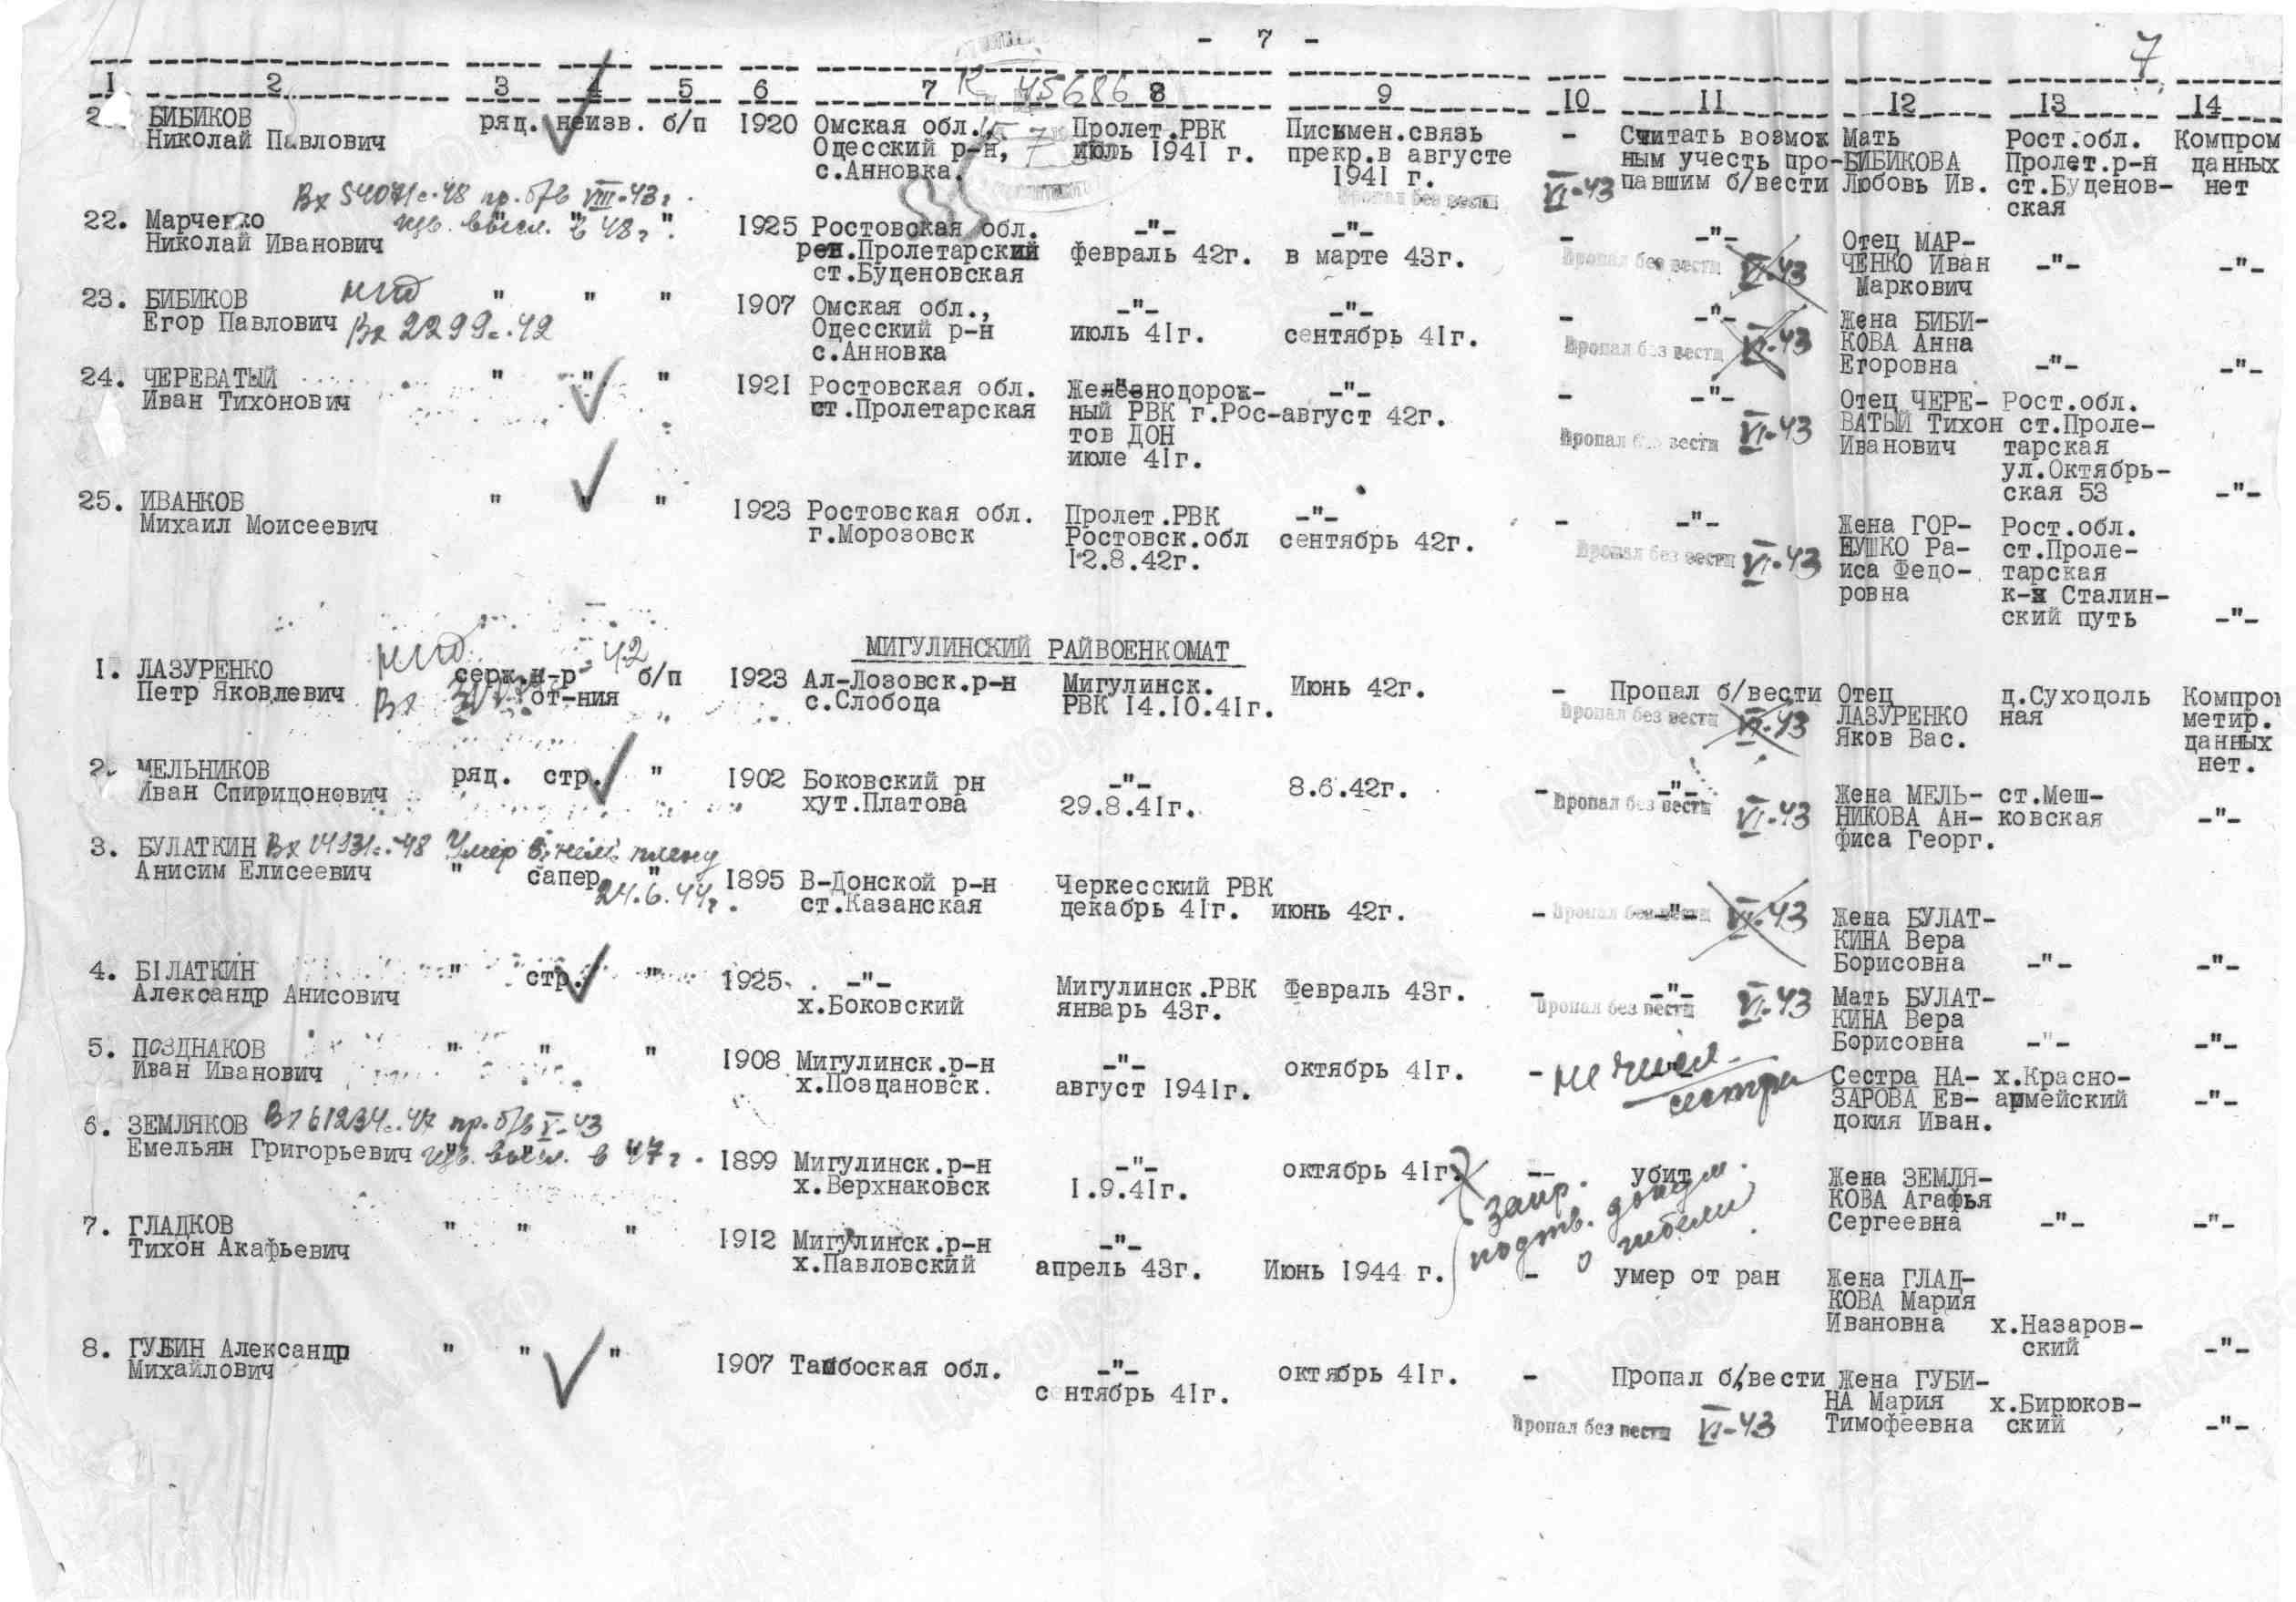 - 7 -
7
1 2 3 4 5 6 7 8 9 10 11 12 13 14
К 45686
БИБИКОВ ряд. неизв. б/п 1920 Омская обл., Пролет.РВК Письмен.связь - Считать возмож Мать Рост.обл. Компром
Николай Павлович Одесский р-н, июль 1941 г. прекр.в августе ным учесть про- БИБИКОВА Пролет.р-н данных
с.Анновка. 1941 г. VI-43 павшим б/вести Любовь Ив. ст.Буденов- нет
Пропал без вести ская
Вх 54071с-48 пр. б/в VIII-43г.
22. Марченко " " " 1925 Ростовская обл. -"- -"- - -"- Отец МАР-
Николай Иванович рен.Пролетарский февраль 42г. в марте 43г. Пропал без вести VI-43 ЧЕНКО Иван -"- -"-
ст.Буденовская Маркович
23. БИБИКОВ " " " 1907 Омская обл., -"- -"- - -"- Жена БИБИ-
Егор Павлович Вх 2299с.42 Одесский р-н июль 41г. сентябрь 41г. Пропал без вести VI-43 КОВА Анна
с.Анновка Егоровна -"- -"-
24. ЧЕРЕВАТЫЙ " " " 1921 Ростовская обл. Железнодорож- -"- - -"- Отец ЧЕРЕ- Рост.обл.
Иван Тихонович ст.Пролетарская ный РВК г.Рос- август 42г. Пропал без вести VI-43 ВАТЫЙ Тихон ст.Проле-
тов ДОН Иванович тарская
июле 41г. ул.Октябрь-
ская 53 -"-
25. ИВАНКОВ " " " 1923 Ростовская обл. Пролет.РВК -"- - -"- Жена ГОР- Рост.обл.
Михаил Моисеевич г.Морозовск Ростовск.обл сентябрь 42г. Пропал без вести VI-43 ПУШКО Ра- ст.Проле-
12.8.42г. иса Федо- тарская
ровна к-з Сталин-
ский путь -"-
МИГУЛИНСКИЙ РАЙВОЕНКОМАТ
1. ЛАЗУРЕНКО серж. к-р б/п 1923 Ал-Лозовск.р-н Мигулинск. Июнь 42г. - Пропал б/вести Отец д.Суходоль Компром
Петр Яковлевич Вх от-ния с.Слобода РВК 14.10.41г. Пропал без вести VI-43 ЛАЗУРЕНКО ная метир.
Яков Вас. данных
нет.
2. МЕЛЬНИКОВ ряд. стр. " 1902 Боковский рн -"- 8.6.42г. - -"- Жена МЕЛЬ- ст.Меш-
Иван Спиридонович хут.Платова 29.8.41г. Пропал без вести VI-43 НИКОВА Ан- ковская -"-
фиса Георг.
3. БУЛАТКИН Вх 14931с.-48 Умер в нем. плену
Анисим Елисеевич " сапер " 24.6.44г. 1895 В-Донской р-н Черкесский РВК
ст.Казанская декабрь 41г. июнь 42г. - -"- Пропал без вести VI-43 Жена БУЛАТ-
КИНА Вера
Борисовна -"- -"-
4. БІЛАТКИН " стр. " 1925. -"- Мигулинск.РВК Февраль 43г. - -"- Мать БУЛАТ-
Александр Анисович х.Боковский январь 43г. Пропал без вести VI-43 КИНА Вера
Борисовна -"- -"-
5. ПОЗДНАКОВ " " " 1908 Мигулинск.р-н -"- октябрь 41г. - Сестра НА- х.Красно-
Иван Иванович х.Поздановск. август 1941г. сестра ЗАРОВА Ев- армейский -"-
докия Иван.
6. ЗЕМЛЯКОВ Вх 61234с.47 пр. б/в V-43
Емельян Григорьевич в 47г. 1899 Мигулинск.р-н -"- октябрь 41г. -- убит Жена ЗЕМЛЯ-
х.Верхнаковск 1.9.41г. КОВА Агафья
Сергеевна -"- -"-
запр.
подтв. докум.
о гибели
7. ГЛАДКОВ " " " 1912 Мигулинск.р-н -"-
Тихон Акафьевич х.Павловский апрель 43г. Июнь 1944 г. - умер от ран Жена ГЛАД-
КОВА Мария
Ивановна х.Назаров-
ский -"-
8. ГУБИН Александр " " " 1907 Тамбоская обл. -"- октябрь 41г. - Пропал б/вести Жена ГУБИ-
Михайлович сентябрь 41г. НА Мария х.Бирюков-
Пропал без вести VI-43 Тимофеевна ский -"-